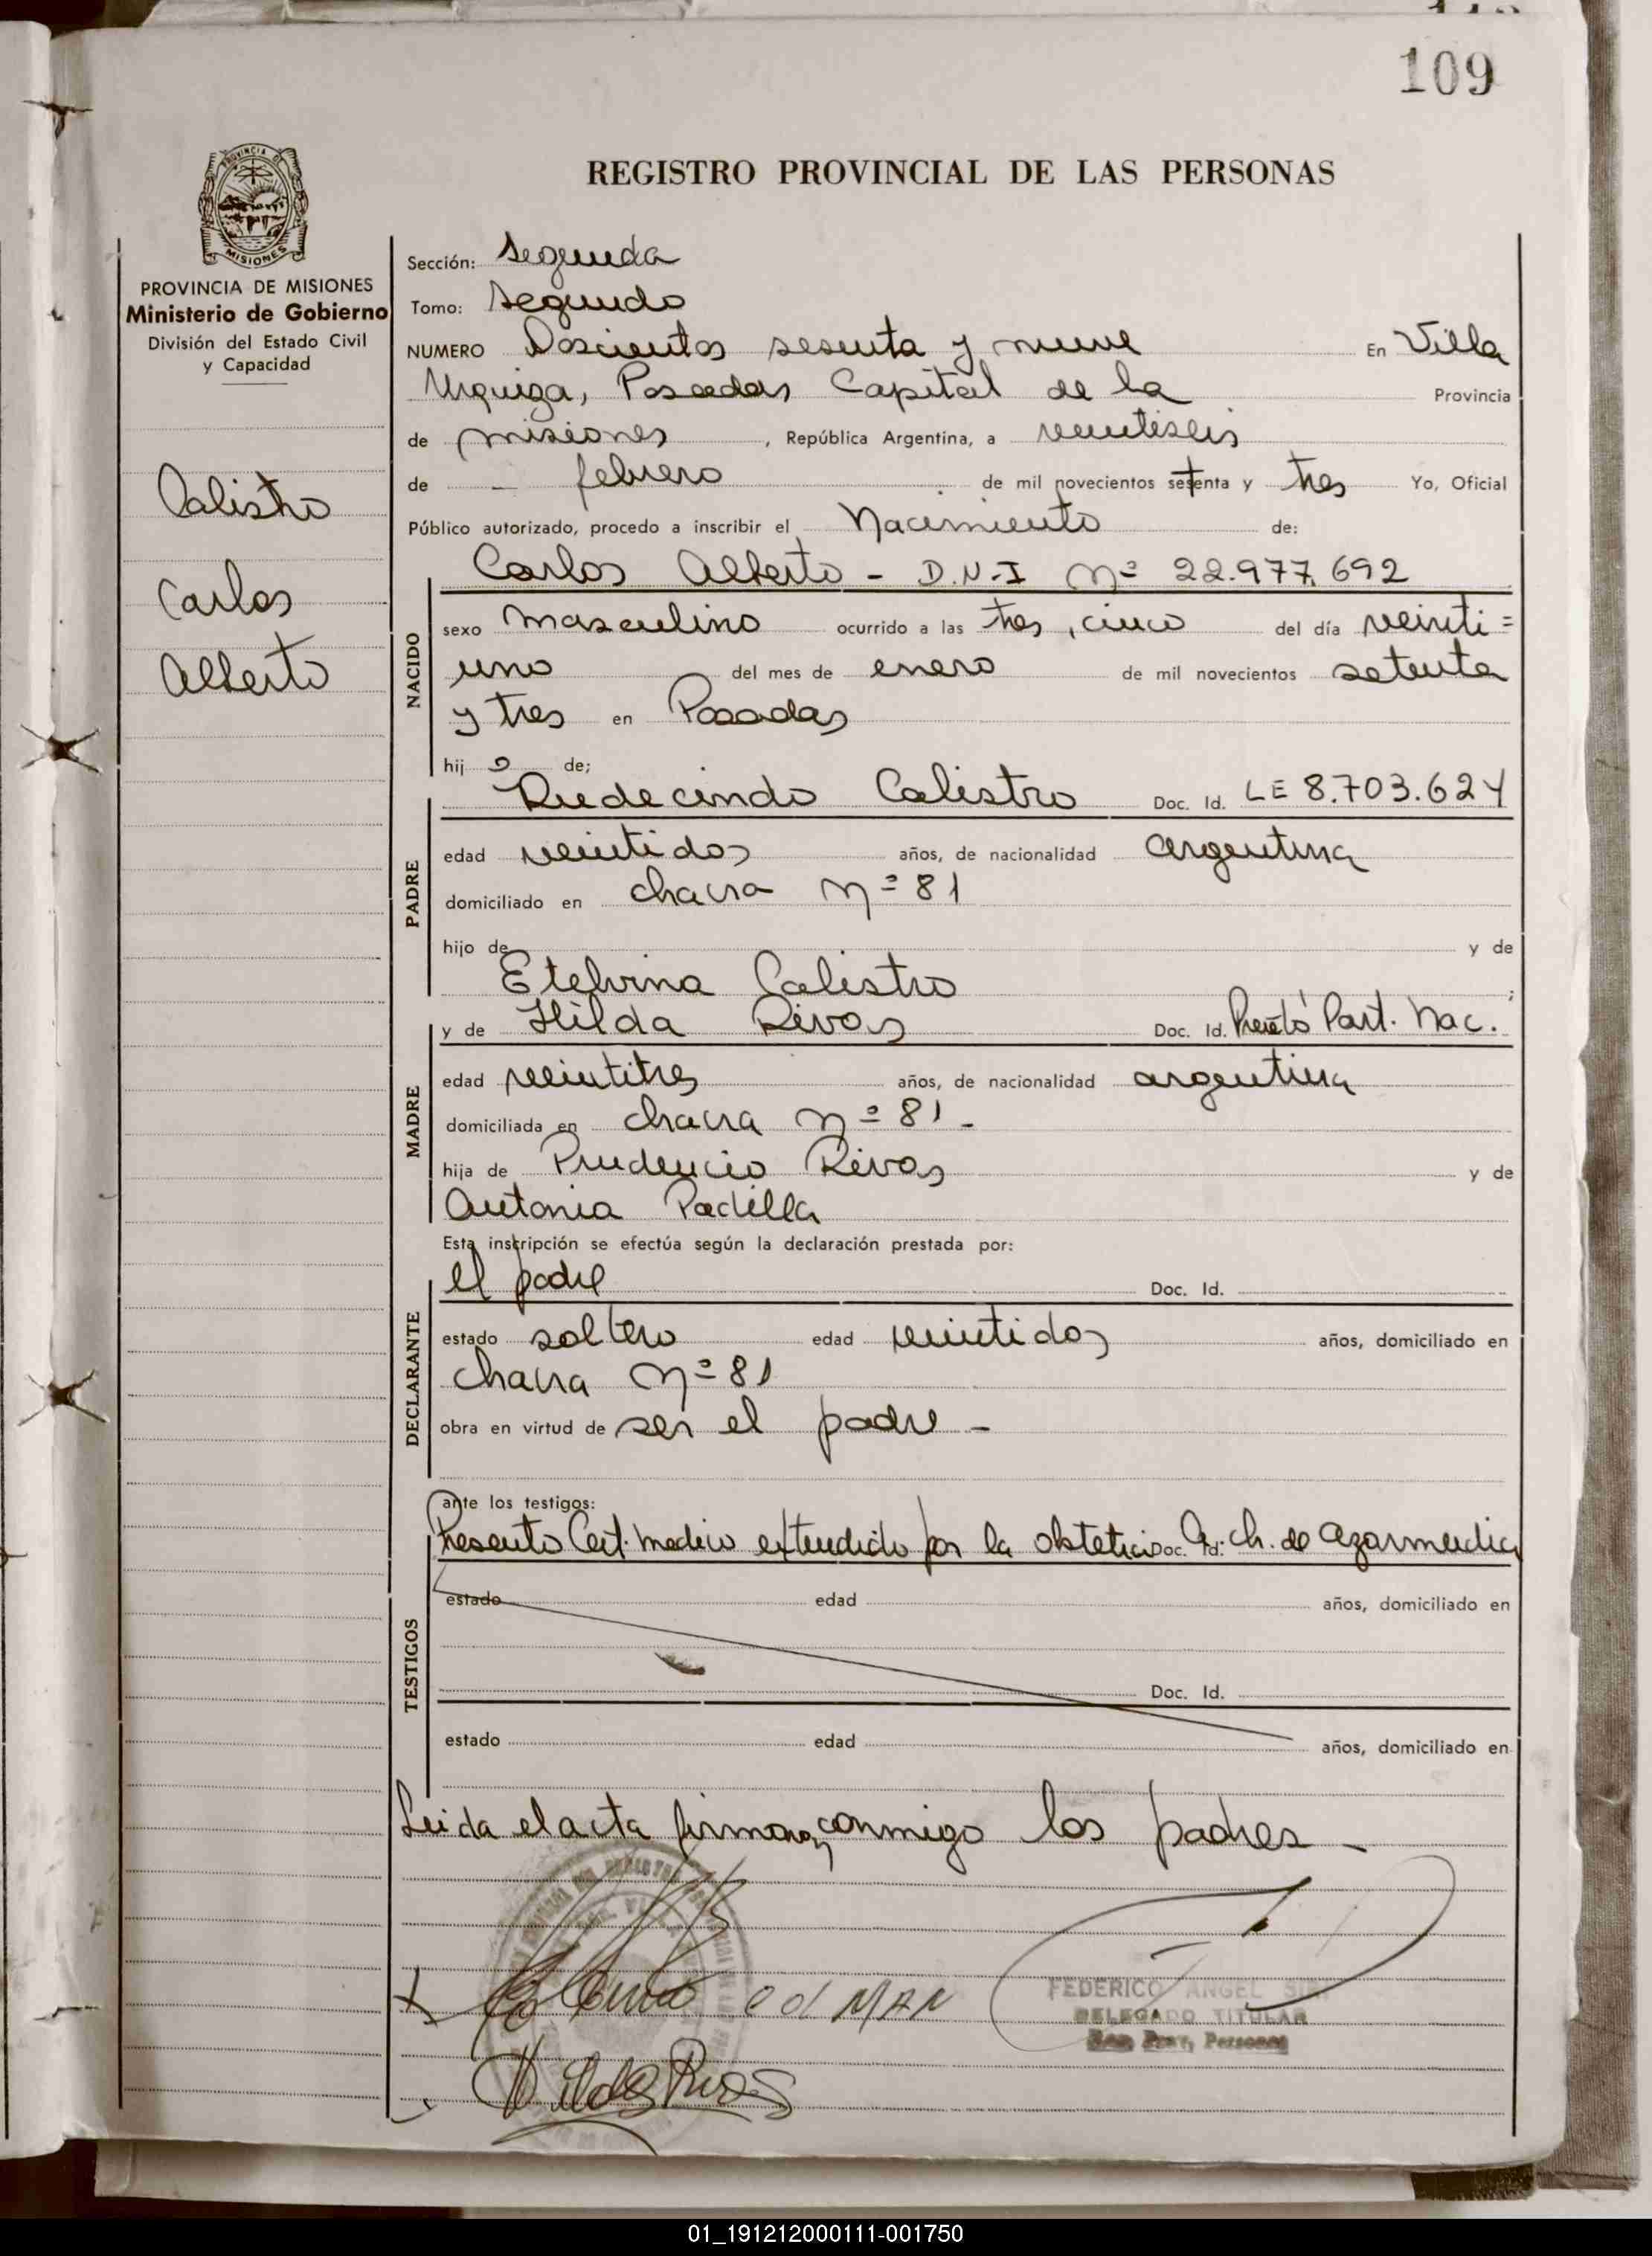 109
PROVINCIA DE
MISIONES
REGISTRO PROVINCIAL DE LAS PERSONAS
PROVINCIA DE MISIONES
Ministerio de Gobierno
División del Estado Civil
y Capacidad
Calistro
Carlos
Alberto
Sección: Segunda
Tomo: Segundo
NUMERO Doscientos sesenta y nueve En Villa
Urquiza, Posadas Capital de la Provincia
de misiones, República Argentina, a veintiseis
de - febrero de mil novecientos setenta y tres Yo, Oficial
Público autorizado, procedo a inscribir el Nacimiento de:
NACIDO
Carlos Alberto - D.N.I Nº 22.977.692
sexo masculino ocurrido a las tres, cinco del día veinti=
uno del mes de enero de mil novecientos setenta
y tres en Posadas
hij o de;
PADRE
Rudecindo Calistro Doc. Id. LE 8.703.624
edad veintidos años, de nacionalidad argentina
domiciliado en chacra nº 81
hijo de y de
Etelvina Calistro ;
MADRE
y de Hilda Rivas Doc. Id. Part. Nac.
edad veintitres años, de nacionalidad argentina
domiciliada en chacra nº 81 -
hija de Prudencio Rivas y de
Antonia Padilla
Esta inscripción se efectúa según la declaración prestada por:
DECLARANTE
el padre Doc. Id.
estado soltero edad veintidos años, domiciliado en
chacra nº 81
obra en virtud de ser el padre -
TESTIGOS
ante los testigos:
Presento Cert. medico extendido por la obstetric Doc. Id. Ch. de Azarmendia
estado edad años, domiciliado en
Doc. Id.
estado edad años, domiciliado en
Leida el acta firman conmigo los padres -
FEDERICO ANGEL
DELEGADO TITULAR
Reg. Prov. Personas
Hilda Rivas
01_191212000111-001750